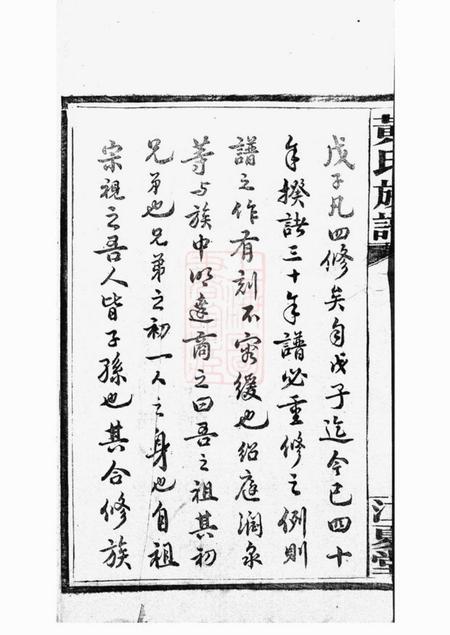 戊子凡四修矣自戊子迄今已四十
年揆諸三十年譜必重修之例則
譜之作有刻不容緩也紹庭潤泉
等与族中明達商之曰吾之祖其初
兄弟也兄弟之初一人之身也自祖
宗視之吾人皆子孫也其合修族
黃氏族譜
江夏堂